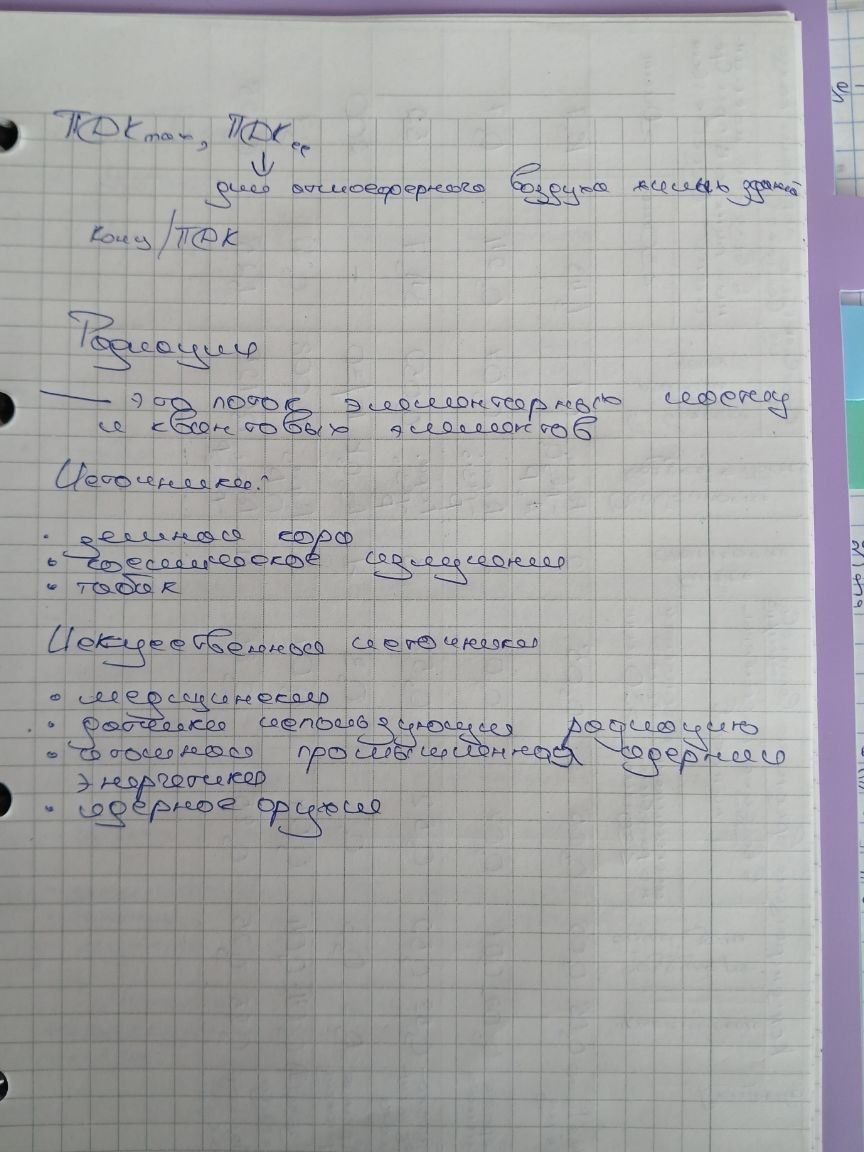 ПДКmax, ПДКсс
↓
для атмосферного воздуха жилых зданий
Конц/ПДК
Радиация
— это поток элементарных частиц
и квантовых элементов
Источники:
• земная кора
• космическое излучение
• табак
Искусственные источники
• медицинские
• датчики использующие радиацию
• атомная промышленная ядерная
энергетика
• ядерное оружие